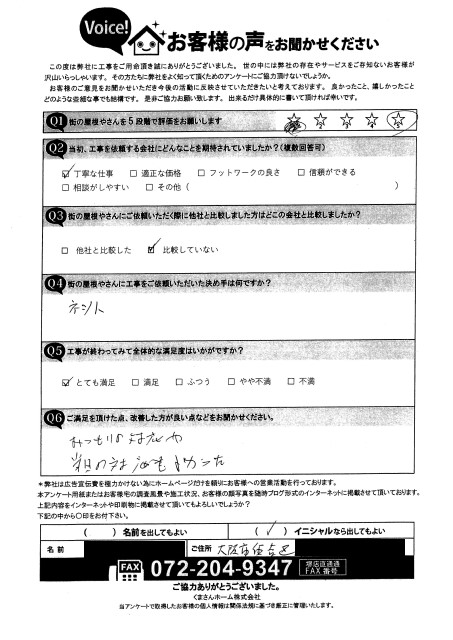 Voice!
お客様の声をお聞かせください
この度は弊社に工事をご用命頂き誠にありがとうございました。 世の中には弊社の存在やサービスをご存知ないお客様が
沢山いらっしゃいます。 その方たちに弊社をよく知って頂くためのアンケートにご協力頂けないでしょうか。
お客様のご意見をお聞かせいただき今後の活動に反映させていただきたいと考えております。 良かったこと、嬉しかったこと
どのような些細な事でも結構です。 是非ご協力お願い致します。 出来るだけ具体的に書いて頂ければ幸いです。
Q1 街の屋根やさんを5段階で評価をお願いします
Q2 当初、工事を依頼する会社にどんなことを期待されていましたか?(複数回答可)
☑ 丁寧な仕事 □ 適正な価格 □ フットワークの良さ □ 信頼ができる
□ 相談がしやすい □ その他( )
Q3 街の屋根やさんにご依頼いただく際に他社と比較しました方はどこの会社と比較しましたか?
□ 他社と比較した ☑ 比較していない
Q4 街の屋根やさんに工事をご依頼いただいた決め手は何ですか?
ネット
Q5 工事が終わってみて全体的な満足度はいかがですか?
☑ とても満足 □ 満足 □ ふつう □ やや不満 □ 不満
Q6 ご満足を頂けた点、改善した方が良い点などをお聞かせください。
*弊社は広告宣伝費を極力かけない為にホームページだけを頼りにお客様への営業活動を行っております。
本アンケート用紙またはお客様宅の調査風景や施工状況、お客様の顔写真を随時ブログ形式のインターネットに掲載させて頂いております。
上記内容をインターネットや印刷物に掲載させて頂いてもよろしいでしょうか?
下記の中から○印をお付下さい。
( ) 名前を出してもよい (✓) イニシャルなら出してもよい
名前 ご住所 大阪市住吉区
FAX 072-204-9347 堺店直通
FAX番号
ご協力ありがとうございました。
くまさんホーム株式会社
当アンケートで取得したお客様の個人情報は関係法規に基づき厳正に管理いたします。